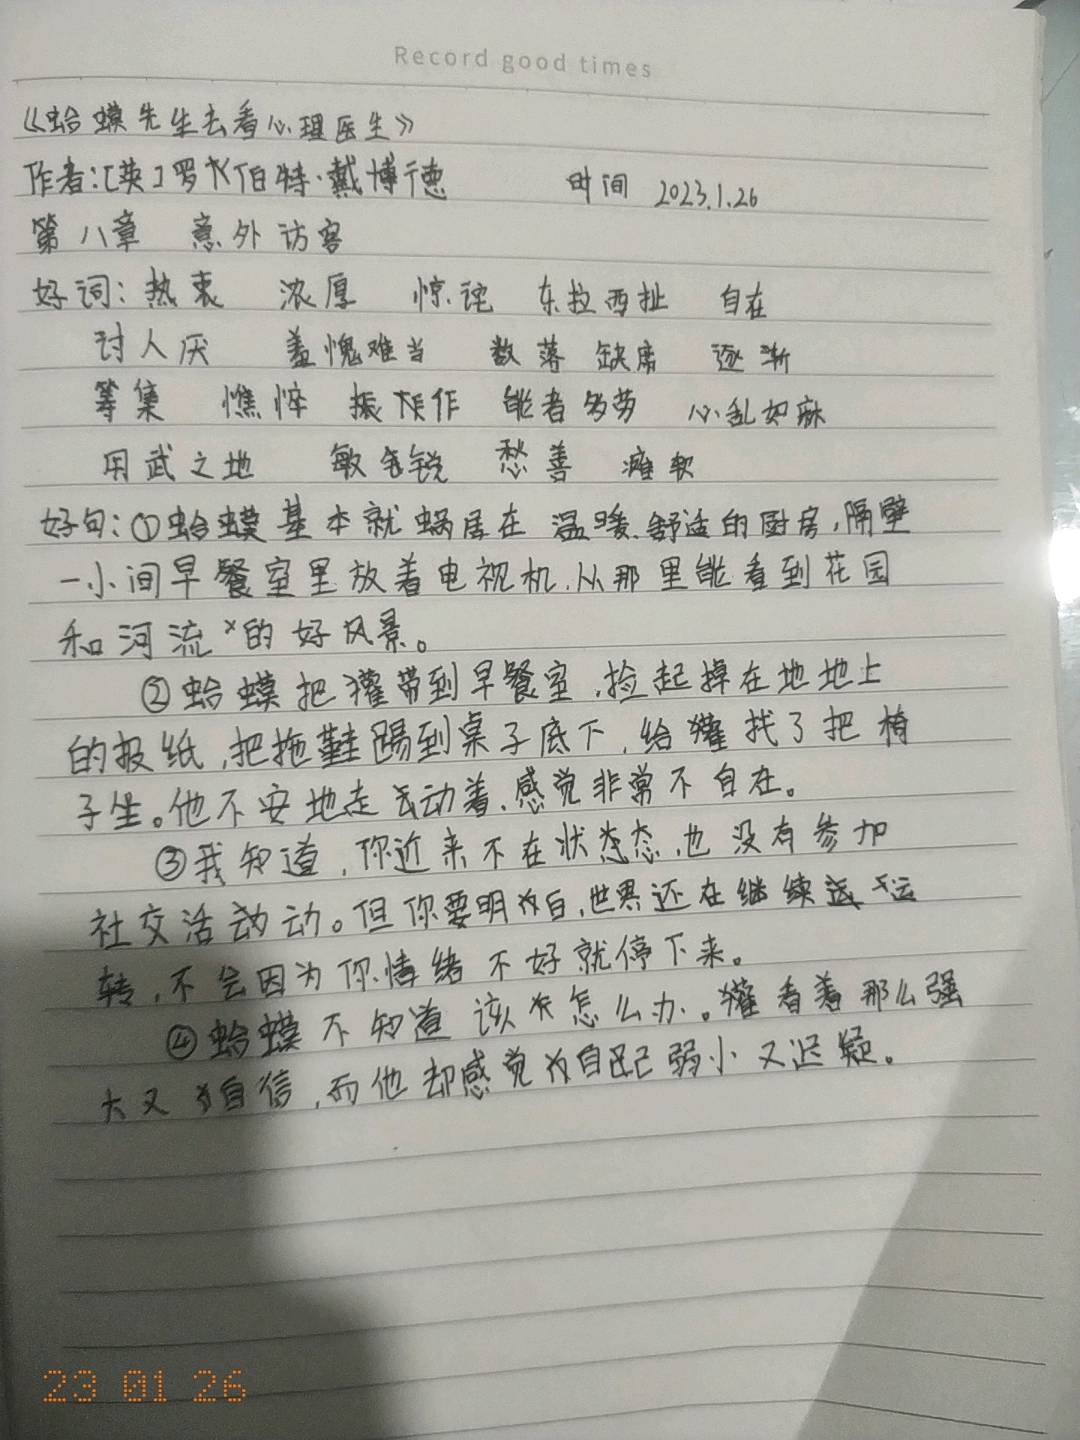 Record good times
《蛤蟆先生去看心理医生》
作者:[英]罗伯特·戴博德 时间 2023.1.26
第八章 意外访客
好词: 热衷 浓厚 惊诧 东拉西扯 自在
讨人厌 羞愧难当 数落 缺席 逐渐
筹集 憔悴 振作 能者多劳 心乱如麻
用武之地 敏锐 愁善 瘫软
好句:①蛤蟆基本就蜗居在温暖舒适的厨房,隔壁
一小间早餐室里放着电视机,从那里能看到花园
和河流的好风景。
②蛤蟆把獾带到早餐室,捡起掉在地地上
的报纸,把拖鞋踢到桌子底下,给獾找了把椅
子坐。他不安地走动着,感觉非常不自在。
③我知道,你近来不在状态,也没有参加
社交活动。但你要明白,世界还在继续运
转,不会因为你情绪不好就停下来。
④蛤蟆不知道该怎么办。獾看着那么强
大又自信,而他却感觉自己弱小又迟疑。
23 01 26